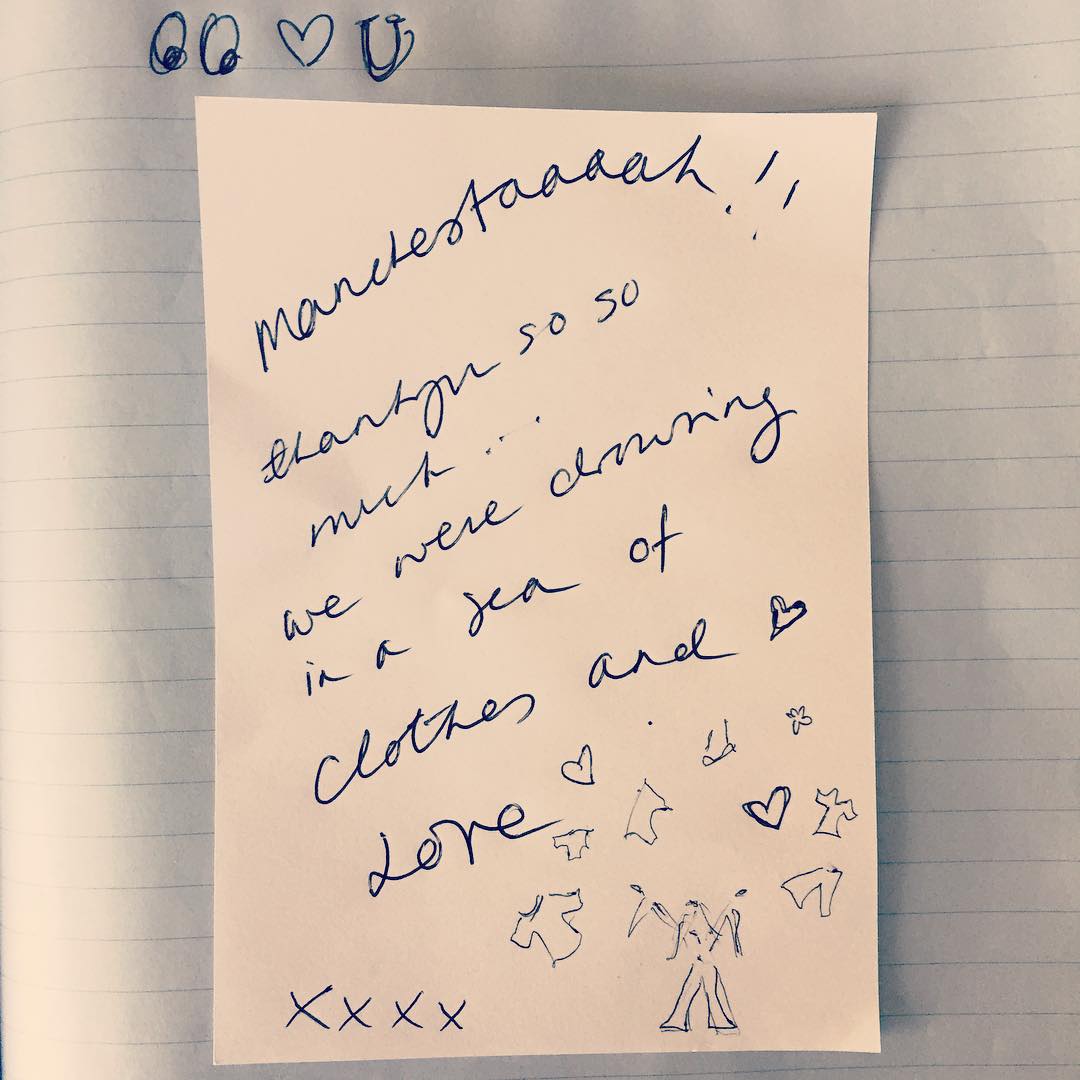 Manchestaaaah!!
thankyu so so
much...
we were drowning
in a sea of
clothes and
Love
xxxx